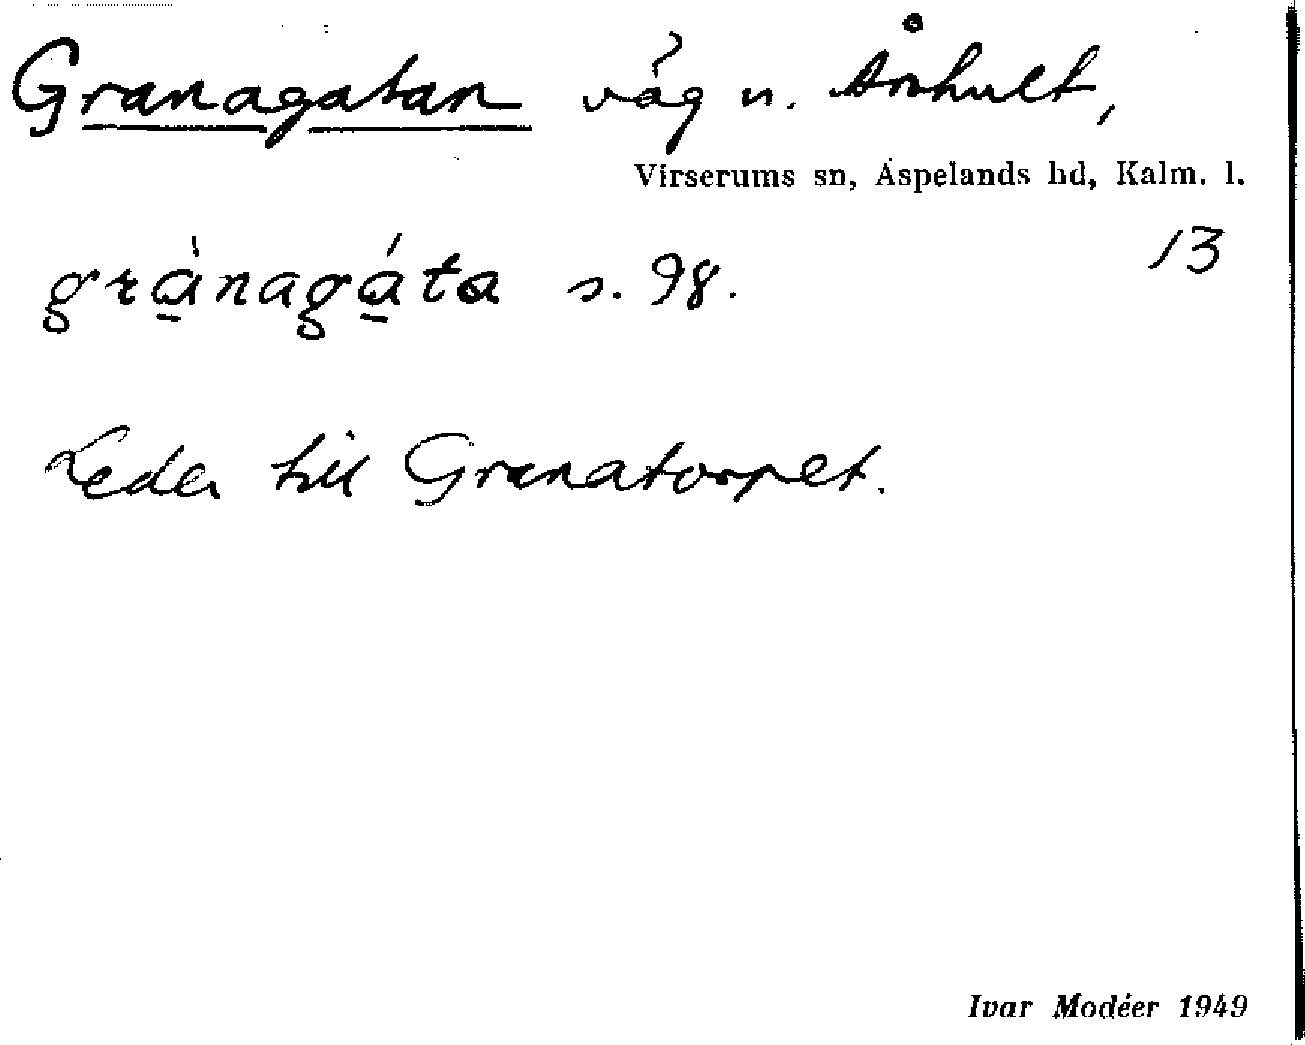 Granagatan väg u. Århult,
Virserums sn, Aspelands hd, Kalm. l.
13
grànagáta s. 98.
Leder till Granatorpet.
Ivar Modéer 1949